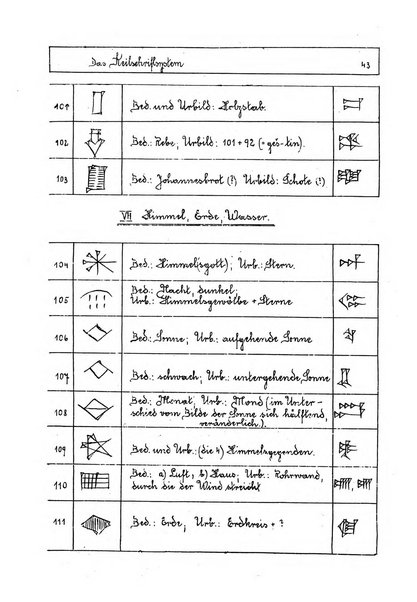 Das Keilschriftsystem 43
101 Bed. und Urbild: Holzstab.
102 Bed.: Rebe; Urbild: 101 + 92 (= geš-tin).
103 Bed.: Johannesbrot (?) Urbild: Schote (?)
VII Himmel, Erde, Wasser.
104 Bed.: Himmel(sgott); Urb.: Stern.
105 Bed.: Nacht, dunkel;
Urb.: Himmelsgewölbe + Sterne
106 Bed.: Sonne; Urb.: aufgehende Sonne
107 Bed.: schwach; Urb.: untergehende Sonne
108 Bed.: Monat, Urb.: Mond (im Unter-
schied vom Bilde der Sonne sich hälftend,
veränderlich.).
109 Bed. und Urb.: (die 4) Himmelsgegenden.
110 Bed.: a) Luft, b) Haus. Urb.: Rohrwand,
durch die der Wind streicht
111 Bed.: Erde; Urb.: Erdkreis + ?